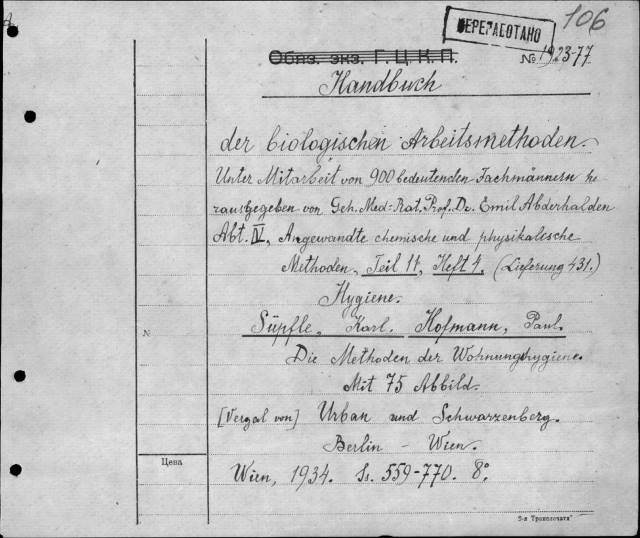 106
ПЕРЕРАБОТАНО
Обяз. экз. Г. Ц. К. П.
№ 1923-77
Handbuch
der biologischen Arbeitsmethoden.
Unter Mitarbeit von 900 bedeutenden Fachmännern he
rausgegeben von Geh. Med=Rat. Prof. Dr. Emil Abderhalden
Abt. IV, Angewandte chemische und physikalische
Methoden, Teil 11, Heft 4. (Lieferung 431.)
Hygiene.
Süpfle, Karl. Hofmann, Paul.
Die Methoden der Wohnungshygiene.
Mit 75 Abbild.
[Vergal von] Urban und Schwarzenberg.
Berlin – Wien.
Wien, 1934. Ss. 559-770. 8°.
N
Цена